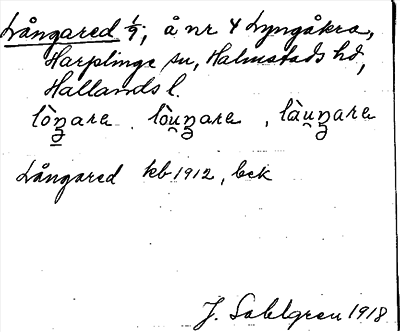 Långared 1/9, å nr 4 Lyngåkra,
Harplinge sn, Halmstads hd,
Hallands l.
lòŋare . lòu̯ŋare , làu̯ŋare
Långared kb 1912, bek
J. Sahlgren 1918